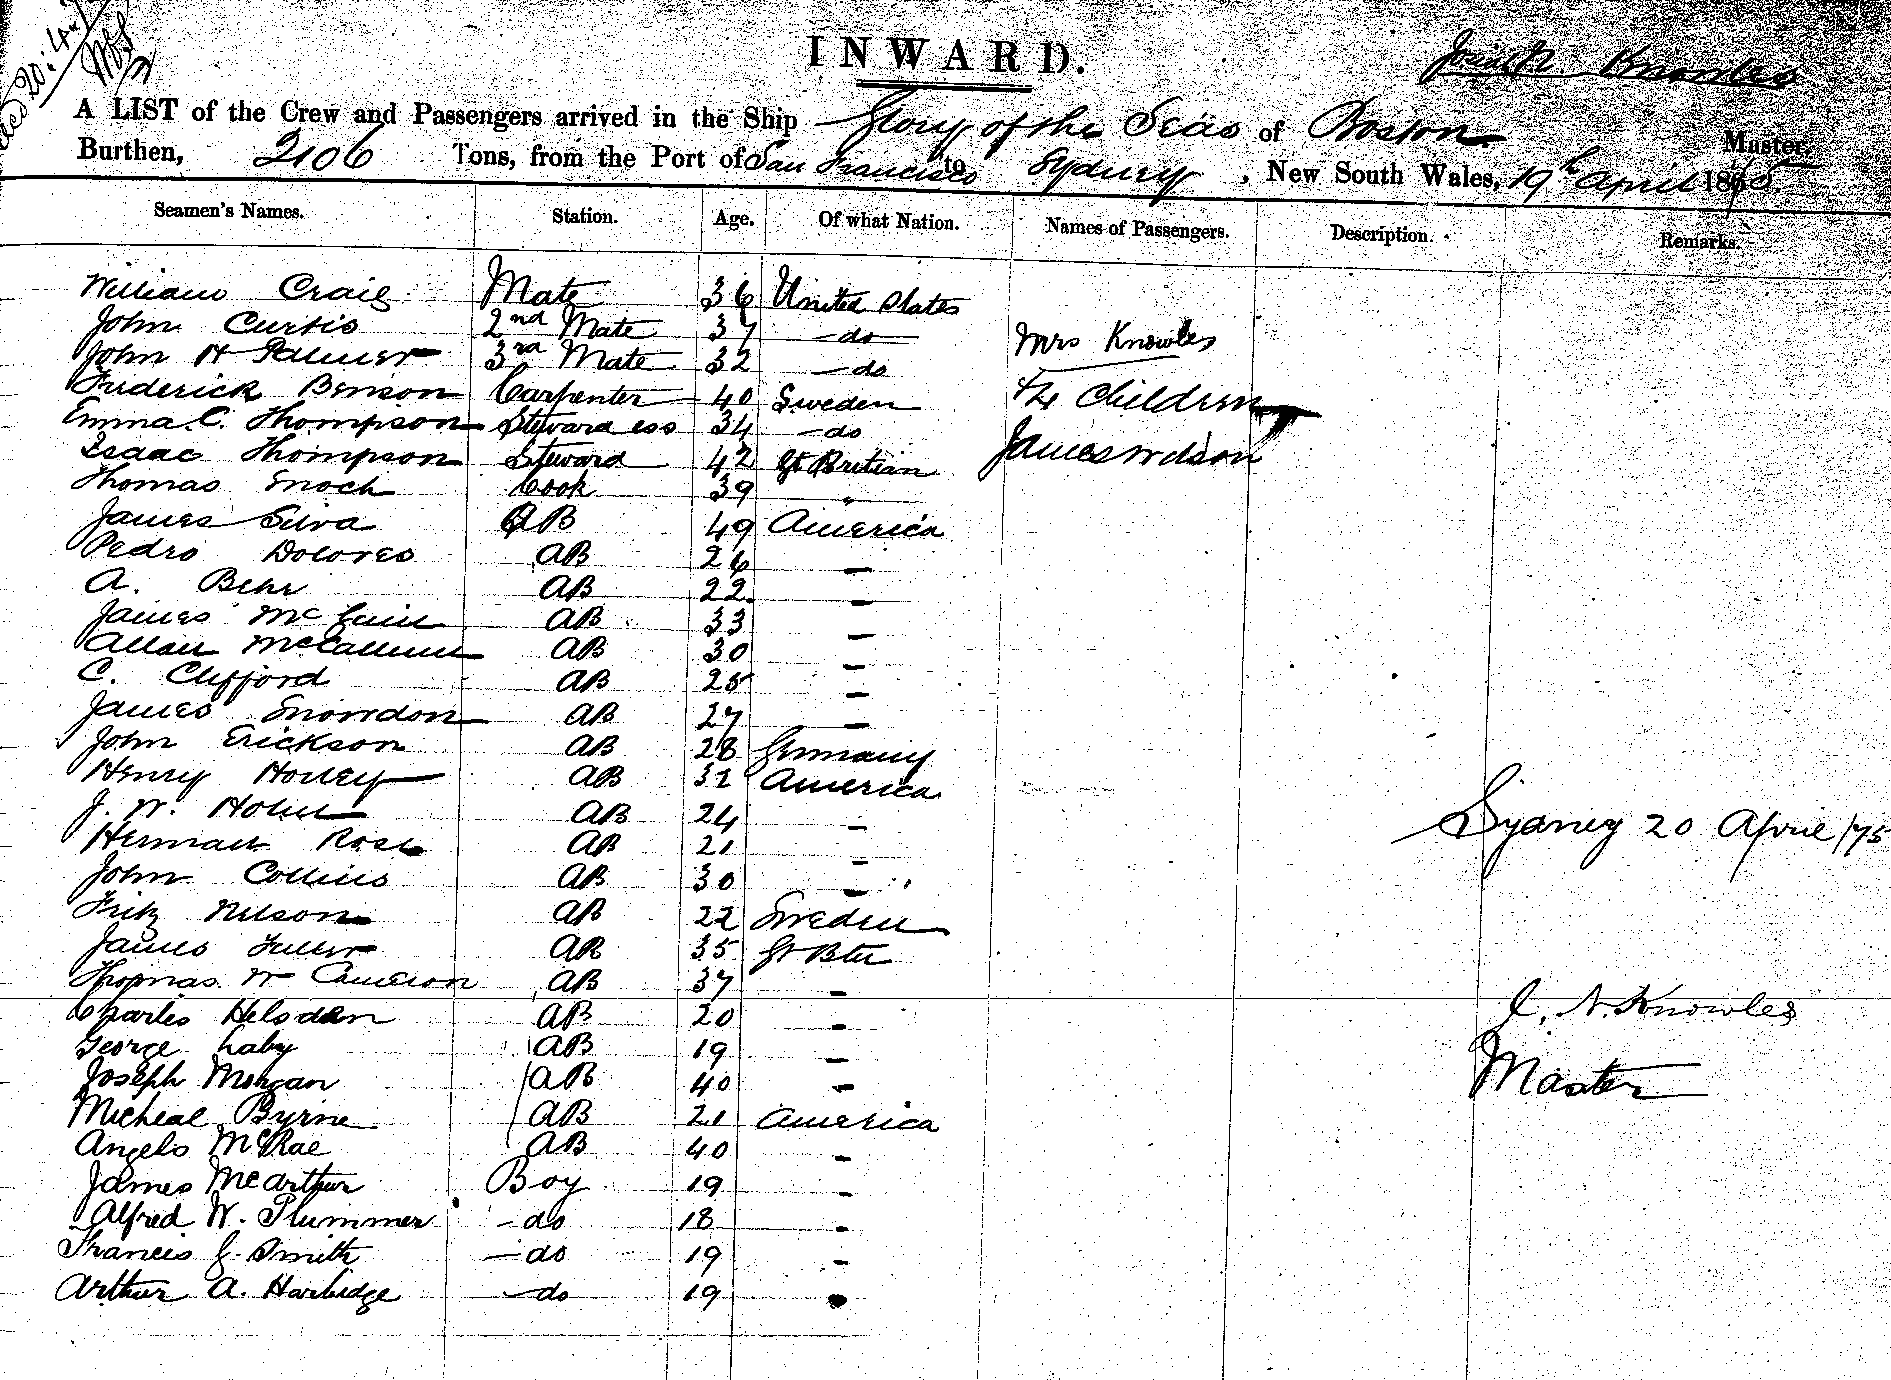 INWARD.
Josiah N. Knowles
A LIST of the Crew and Passengers arrived in the Ship Glory of the Seas of Boston
Master,
Burthen, 2106 Tons, from the Port of San Francisco to Sydney, New South Wales, 19th April 1875
Seamen's Names. Station. Age. Of what Nation. Names of Passengers. Description. Remarks.
William Craig Mate 36 United States
John Curtis 2nd Mate 37 - do Mrs Knowles
John H Palmer 3rd Mate 32 - do
Frederick Benson Carpenter 40 Sweden Children
Emma C. Thompson Steward ess 34 - do
Isaac Thompson Steward 42 Gt Britian James Wilson
Thomas Enoch Cook 39 "
James Silva AB 49 America
Pedro Dolores AB 26 -
A. Behr AB 22 -
James AB 33 -
Allan McCallum AB 30 -
C. Clifford AB 25 -
James Snowdon AB 27 -
John Erickson AB 28 Germany
Henry AB 32 America
J. W. Holm AB 24 -
Herman Rose AB 21 -
John Collins AB 30 -
Sydney 20 April /75
Fritz Nelson AB 22 Sweden
James Fuller AB 35 Gt Btn
Thomas W Cameron AB 37 -
Charles Helsden AB 20 -
J. N. Knowles
George Laby AB 19 -
Joseph Morgan AB 40 -
Master
Micheal Byrne AB 21 America
Angelo McRae AB 40 -
James McArthur Boy 19 -
Alfred W. Plummer - do 18 -
Francis J. Smith - do 19 -
Arthur A. Harbidge - do 19 -